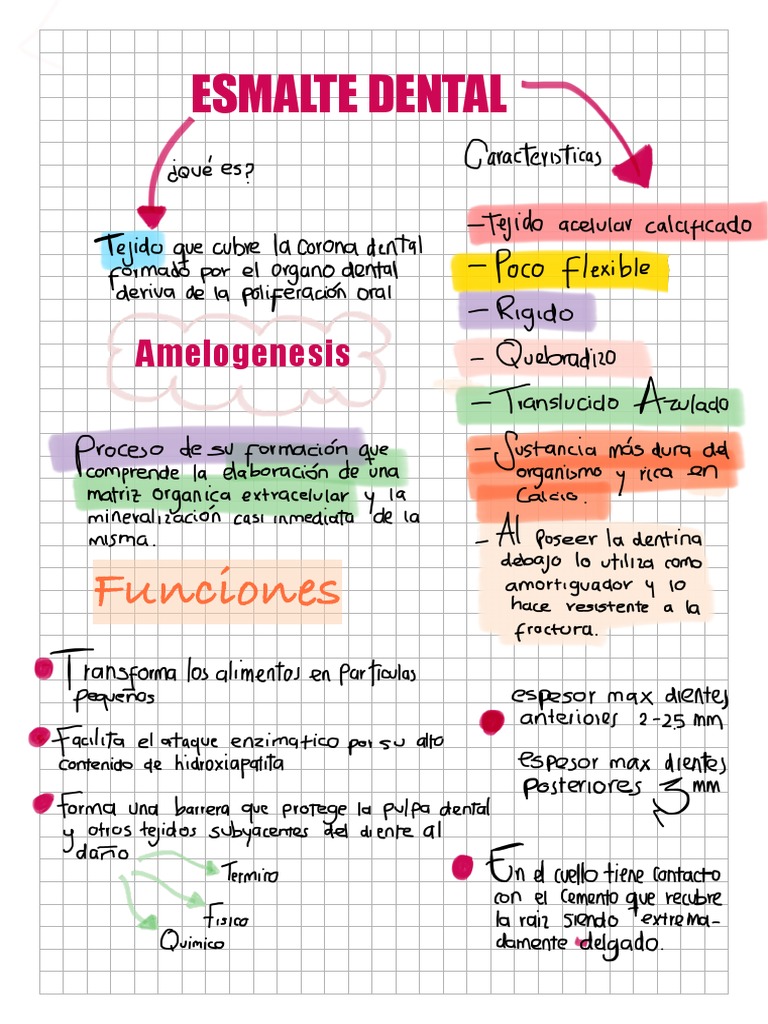 ESMALTE DENTAL
¿Qué es?
Tejido que cubre la corona dental
formado por el organo dental
deriva de la poliferación oral
Amelogenesis
Proceso de su formación que
comprende la elaboración de una
matriz organica extracelular y la
mineralización casi inmediata de la
misma.
Funciones
Transforma los alimentos en particulas
pequeños
Facilita el ataque enzimatico por su alto
contenido de hidroxiapatita
Forma una barrera que protege la pulpa dental
y otros tejidos subyacentes del diente al
daño
Termico
Fisico
Quimico
Caracteristicas
- Tejido acelular calcificado
- Poco flexible
- Rigido
- Quebradizo
- Translucido Azulado
- Sustancia más dura del
organismo y rica en
Calcio.
- Al poseer la dentina
debajo lo utiliza como
amortiguador y lo
hace resistente a la
fractura.
espesor max dientes
anteriores 2-2.5 mm
espesor max dientes
posteriores 3 mm
En el cuello tiene contacto
con el cemento que recubre
la raiz siendo extrema-
damente delgado.